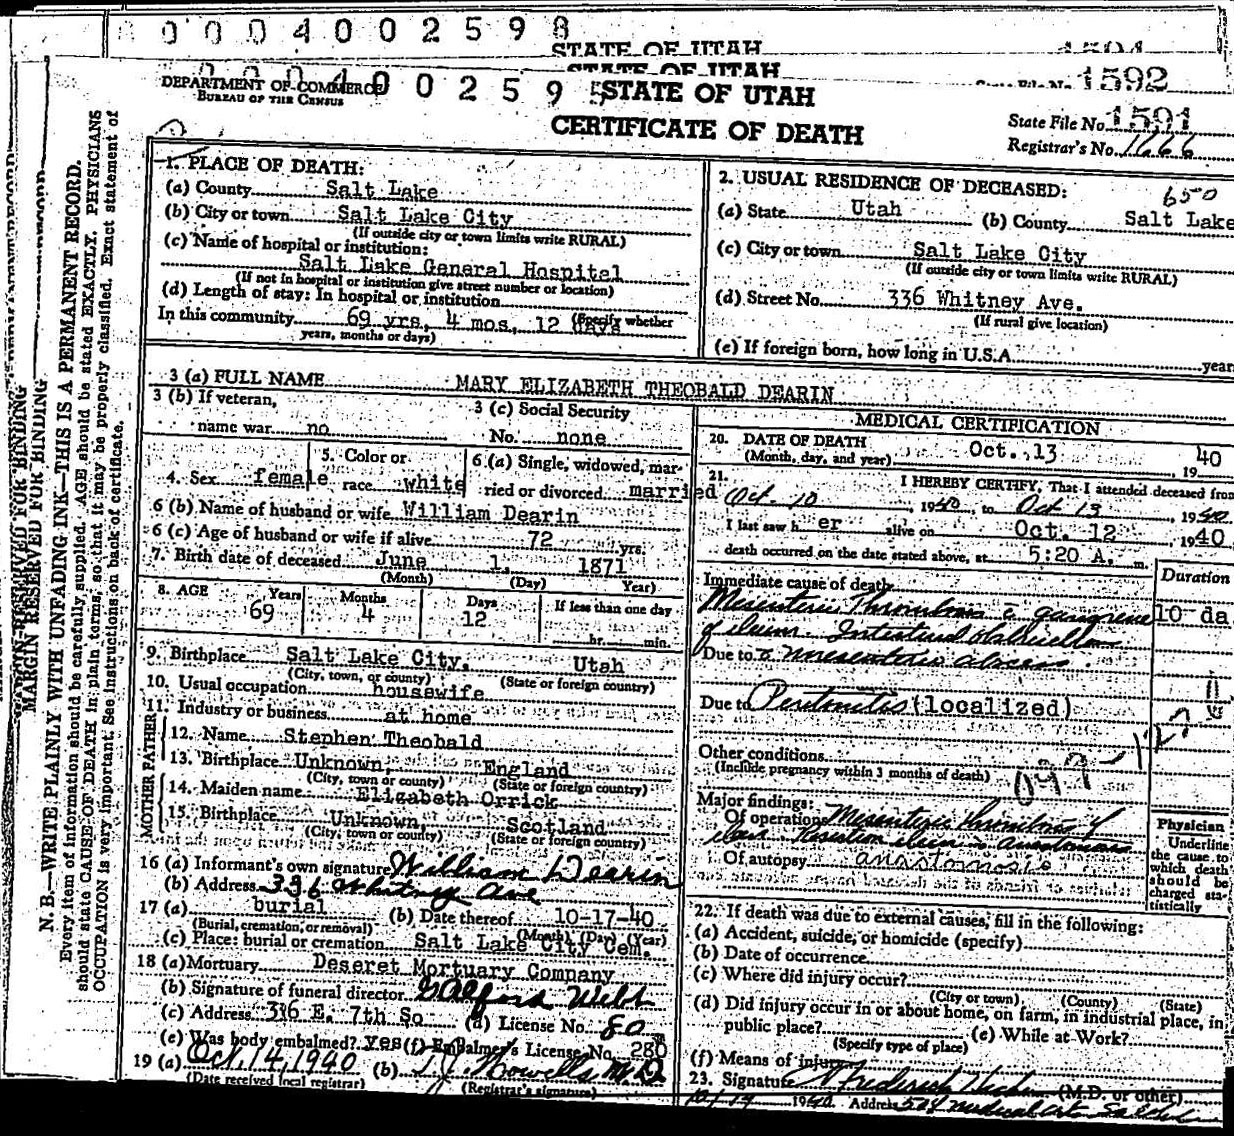 0 0 0 4 0 0 2 5 9 8
STATE OF UTAH
STATE OF UTAH
State File No. 1592
DEPARTMENT OF COMMERCE
BUREAU OF THE CENSUS
0 4 0 0 2 5 9 5
STATE OF UTAH
CERTIFICATE OF DEATH
State File No. 1591
Registrar's No. 1666
MARGIN RESERVED FOR BINDING
N. B.—WRITE PLAINLY WITH UNFADING INK—THIS IS A PERMANENT RECORD.
Every item of information should be carefully supplied. AGE should be stated EXACTLY. PHYSICIANS
should state CAUSE OF DEATH in plain terms, so that it may be properly classified. Exact statement of
OCCUPATION is very important. See instructions on back of certificate.
1. PLACE OF DEATH:
(a) County Salt Lake
(b) City or town Salt Lake City
(If outside city or town limits write RURAL)
(c) Name of hospital or institution:
Salt Lake General Hospital
(If not in hospital or institution give street number or location)
(d) Length of stay: In hospital or institution
In this community 69 yrs, 4 mos, 12 days (Specify whether
years, months or days)
2. USUAL RESIDENCE OF DECEASED:
650
(a) State Utah (b) County Salt Lake
(c) City or town Salt Lake City
(If outside city or town limits write RURAL)
(d) Street No. 336 Whitney Ave.
(If rural give location)
(e) If foreign born, how long in U.S.A. year
3 (a) FULL NAME MARY ELIZABETH THEOBALD DEARIN
3 (b) If veteran,
name war no
3 (c) Social Security
No. none
4. Sex female
5. Color or
race white
6 (a) Single, widowed, mar-
ried or divorced married
6 (b) Name of husband or wife William Dearin
6 (c) Age of husband or wife if alive 72 yrs.
7. Birth date of deceased June 1, 1871
(Month) (Day) Year)
8. AGE Years 69 Months 4 Days 12 If less than one day
hr. min.
9. Birthplace Salt Lake City, Utah
(City, town, or county) (State or foreign country)
10. Usual occupation housewife
11. Industry or business at home
FATHER
12. Name Stephen Theobald
13. Birthplace Unknown, England
(City, town or county) (State or foreign country)
MOTHER
14. Maiden name Elizabeth Orrick
15. Birthplace Unknown Scotland
(City, town or county) (State or foreign country)
16 (a) Informant's own signature William Dearin
(b) Address 336 Whitney Ave
17 (a) burial (b) Date thereof 10-17-40
(Burial, cremation, or removal) (Month) (Day) (Year)
(c) Place: burial or cremation Salt Lake City Cem.
18 (a) Mortuary Deseret Mortuary Company
(b) Signature of funeral director Webb
(c) Address 336 E. 7th So (d) License No. 80
(e) Was body embalmed? yes (f) Embalmer's License No. 280
19 (a) Oct. 14, 1940 (b) M.D.
(Date received local registrar) (Registrar's signature)
MEDICAL CERTIFICATION
20. DATE OF DEATH Oct. 13 40
(Month, day, and year) 19
21. I HEREBY CERTIFY, That I attended deceased from
Oct. 10, 1940, to Oct 13, 1940
I last saw her alive on Oct. 12 1940
death occurred on the date stated above, at 5:20 A. m.
Immediate cause of death Duration
Mesenteric Thrombosis c gangrene 10 da
of ileum. Intestinal obstruction
Due to c mesenteric abscess.
Due to Peritonitis (localized)
Other conditions
(Include pregnancy within 3 months of death)
Major findings:
Of operations Mesenteric thrombosis of
ileum. Resection ileum c anastomosis
Of autopsy anastomosis
Physician
Underline
the cause to
which death
should be
charged sta-
tistically
22. If death was due to external causes, fill in the following:
(a) Accident, suicide, or homicide (specify)
(b) Date of occurrence
(c) Where did injury occur?
(City or town) (County) (State)
(d) Did injury occur in or about home, on farm, in industrial place, in
public place? (e) While at Work?
(Specify type of place)
(f) Means of injury
23. Signature Frederick (M.D. or other)
10/14 1940 Address 504 Medical Arts